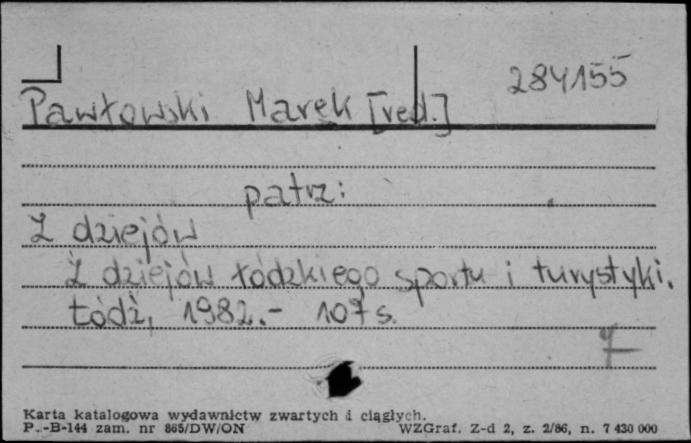 284155
Pawłowski Marek [red.]
patrz:
Z dziejów
Z dziejów łódzkiego sportu i turystyki.
Łódź, 1982.- 107 s.
Karta katalogowa wydawnictw zwartych i ciągłych.
P.-B-144 zam. nr 865/DW/ON WZGraf. Z-d 2, z. 2/86, n. 7 430 000